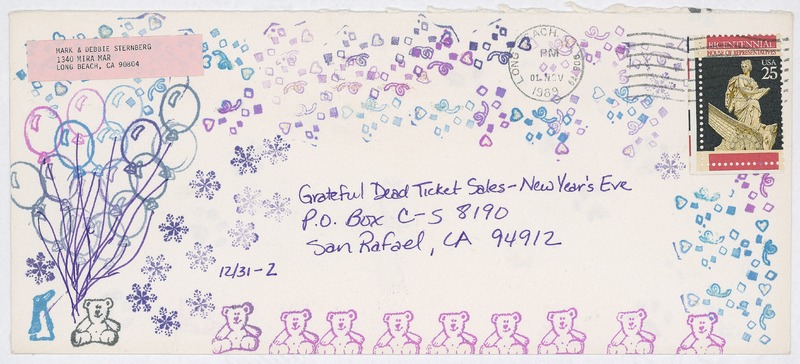 MARK & DEBBIE STERNBERG
1340 MIRA MAR
LONG BEACH, CA 90804
LONG BEACH, CA
PM
01 NOV
1989
BICENTENNIAL
HOUSE OF REPRESENTATIVES
USA
25
Grateful Dead Ticket Sales - New Year's Eve
P.O. Box C-S 8190
San Rafael, CA 94912
12/31-2